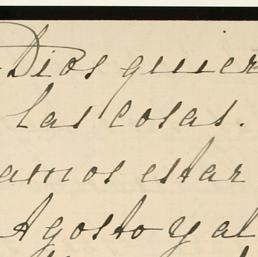 Dios quier
las cosas.
amos estar
Agosto y al